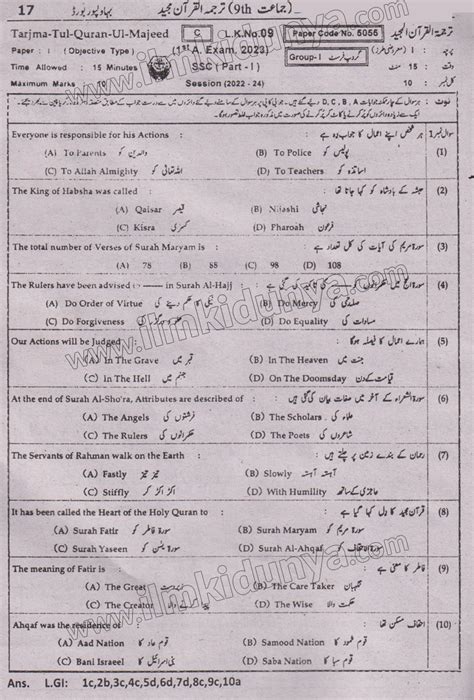 17 بہاولپور بورڈ ترجمۃ القرآن مجید (جماعت 9th)
Tarjma-Tul-Quran-Ul-Majeed C L.K.No.09 Paper Code No. 5055 ترجمۃ القرآن المجید
Paper : I (Objective Type) (1st A. Exam. 2023) Group-I گروپ فرسٹ پرچہ : I (معروضی طرز)
Time Allowed : 15 Minutes SSC (Part - I) وقت : 15 منٹ
Maximum Marks : 10 Session (2022 - 24) 10 :
نوٹ :
Everyone is responsible for his Actions : ہر شخص اپنے اعمال کا جواب دہ ہے : سوال نمبر 1
(A) To Parents والدین کو (B) To Police پولیس کو (1)
(C) To Allah Almighty اللہ تعالیٰ کو (D) To Teachers اساتذہ کو
The King of Habsha was called : حبشہ کے بادشاہ کو کہا جاتا تھا : (2)
(A) Qaisar قیصر (B) Nijashi نجاشی
(C) Kisra کسریٰ (D) Pharoah فرعون
The total number of Verses of Surah Maryam is : سورۃ مریم کی آیات کی کل تعداد ہے : (3)
(A) 78 (B) 88 (C) 98 (D) 108
The Rulers have been advised ------ in Surah Al-Hajj : (4)
(A) Do Order of Virtue نیکی کا حکم دینے کی (B) Do Mercy صلہ رحمی کی
(C) Do Forgiveness درگزر کی (D) Do Equality مساوات کی
Our Actions will be Judged : ہمارے اعمال کا فیصلہ ہوگا : (5)
(A) In The Grave قبر میں (B) In The Heaven جنت میں
(C) In The Hell جہنم میں (D) On The Doomsday قیامت کے دن
At the end of Surah Al-Sho'ra, Attributes are described of : سورۃ الشعراء کے آخر میں صفات بیان کی گئی ہیں : (6)
(A) The Angels فرشتوں کی (B) The Scholars علماء کی
(C) The Rulers حکمرانوں کی (D) The Poets شاعروں کی
The Servants of Rahman walk on the Earth : رحمان کے بندے زمین پر چلتے ہیں : (7)
(A) Fastly تیز تیز (B) Slowly آہستہ آہستہ
(C) Stiffly اکڑ اکڑ کر (D) With Humility عاجزی کے ساتھ
It has been called the Heart of the Holy Quran to : قرآن مجید کا دل کہا گیا ہے : (8)
(A) Surah Fatir سورۃ فاطر کو (B) Surah Maryam سورۃ مریم کو
(C) Surah Yaseen سورۃ یٰسین کو (D) Surah Al-Ahqaf سورۃ الاحقاف کو
The meaning of Fatir is : فاطر کا معنی ہے : (9)
(A) The Great زبردست (B) The Care Taker نگہبان
(C) The Creator پیدا کرنے والا (D) The Wise حکمت والا
Ahqaf was the residence of : احقاف مسکن تھا : (10)
(A) Aad Nation قوم عاد کا (B) Samood Nation قوم ثمود کا
(C) Bani Israeel بنی اسرائیل کا (D) Saba Nation قوم سبا کا
Ans. L.GI: 1c,2b,3c,4c,5d,6d,7d,8c,9c,10a
www.ilmkidunya.com